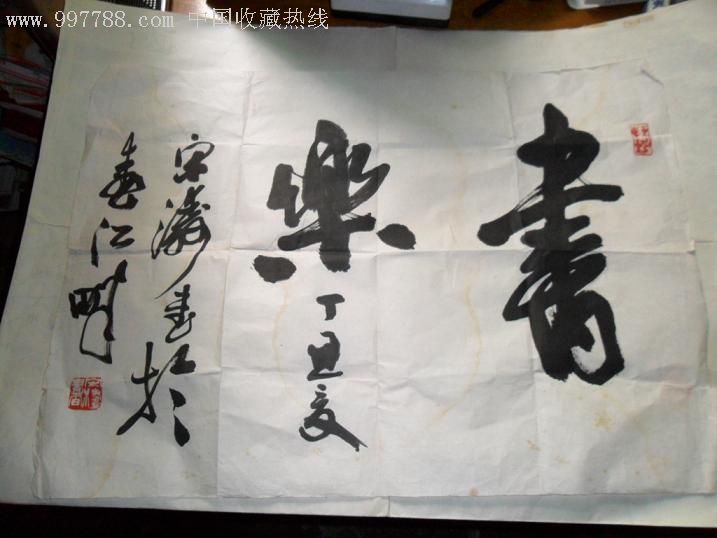 www.997788.com 中国收藏热线
書
樂
丁丑夏
宋涛書於
春江畔